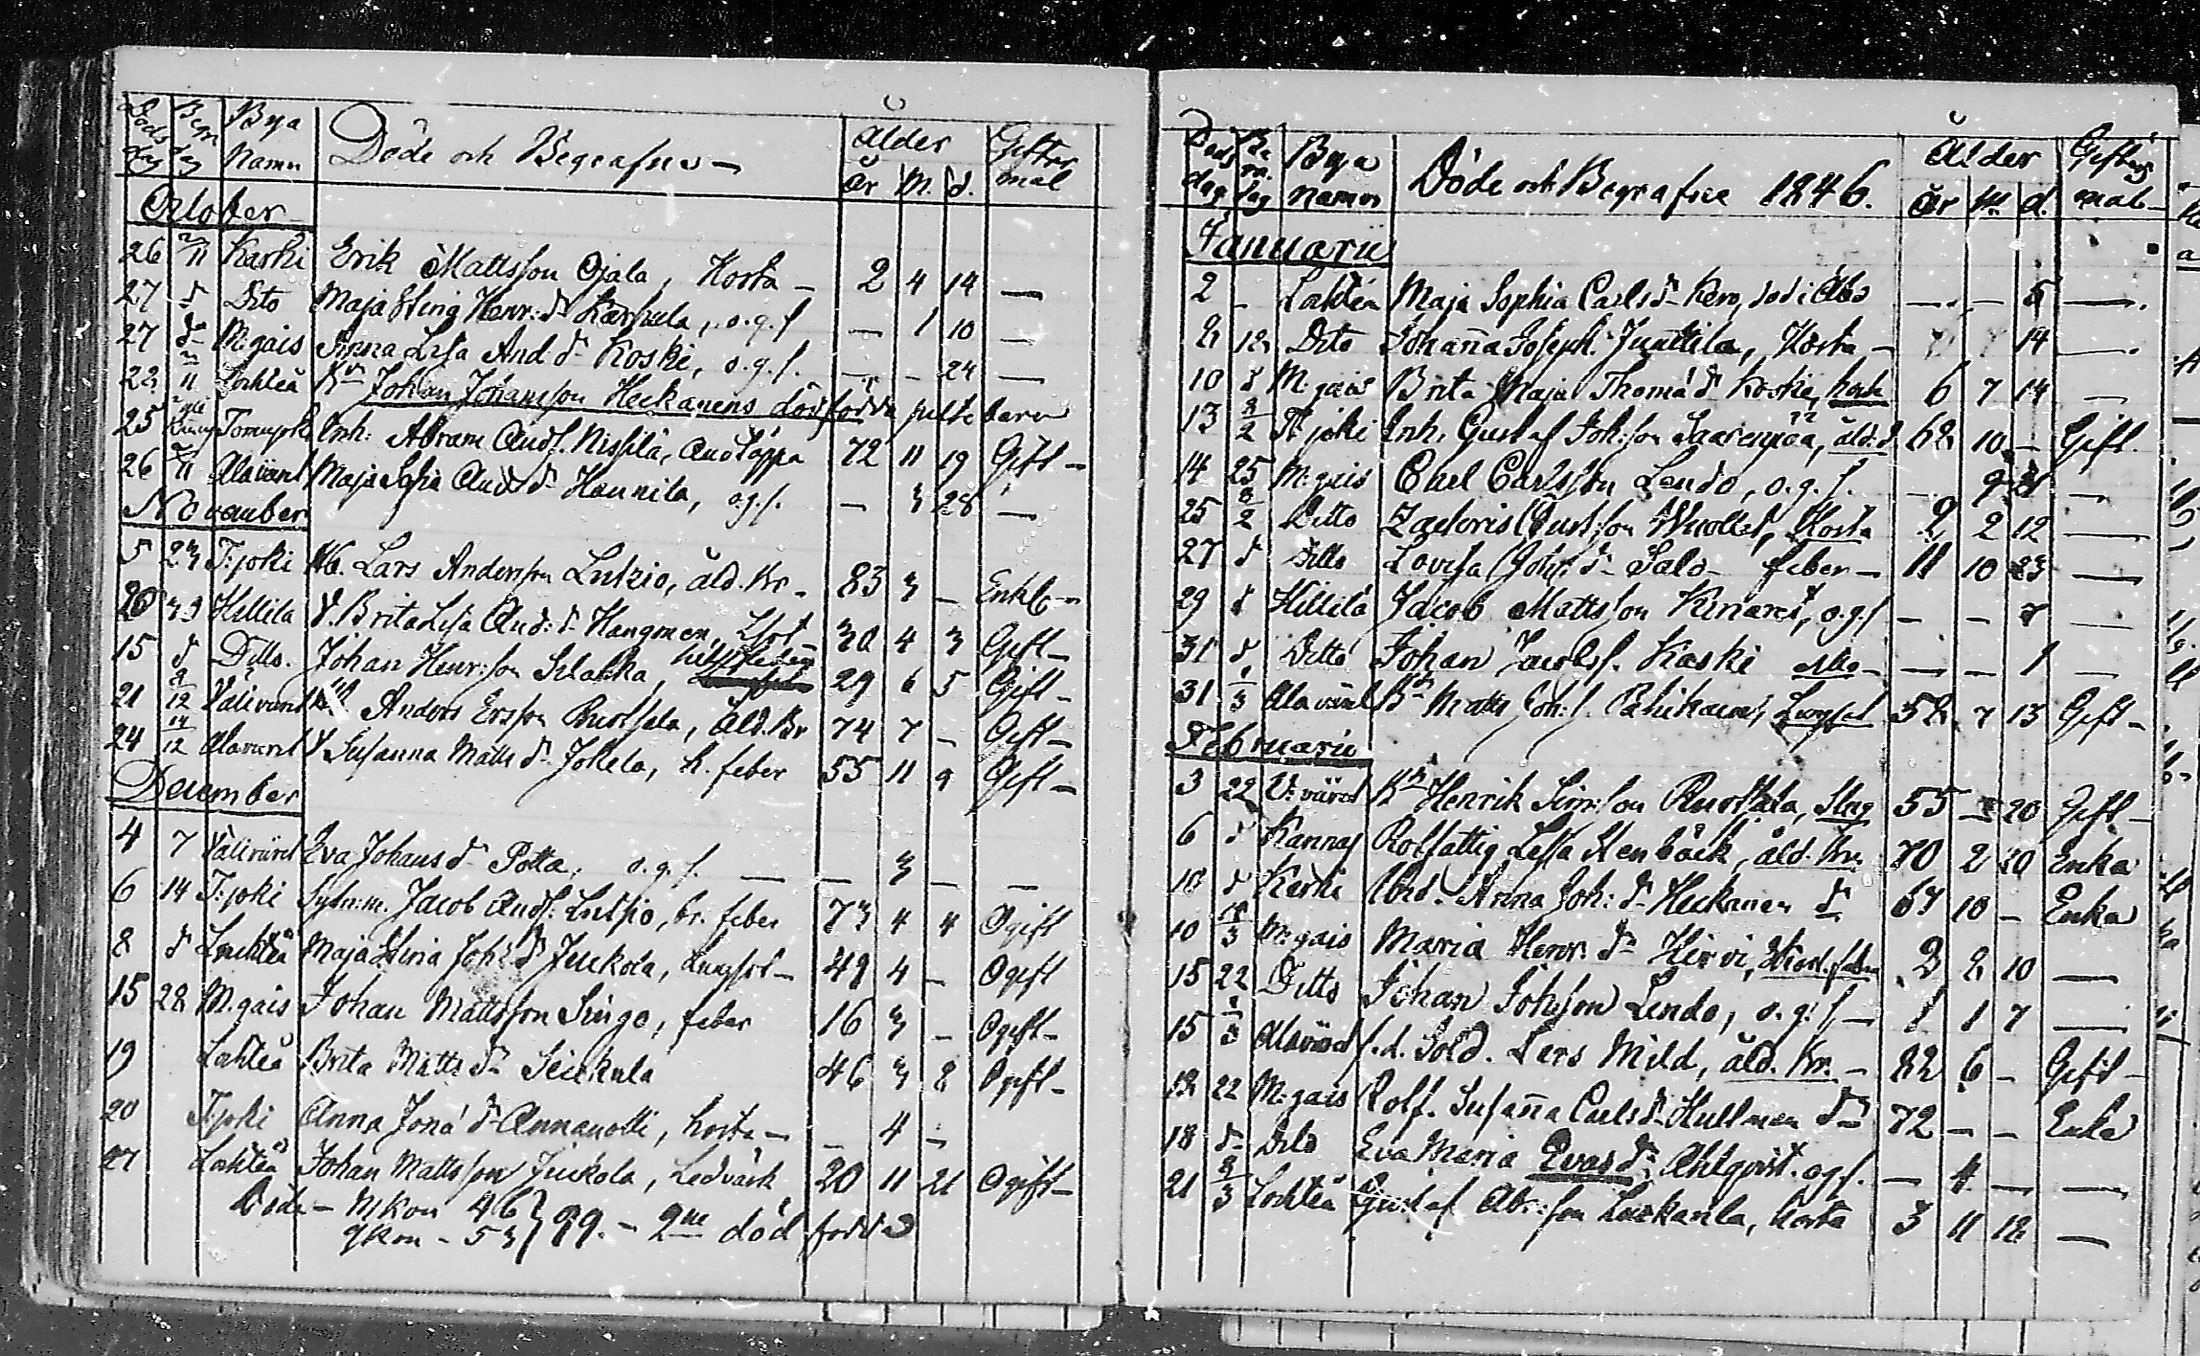 Döds dag Begr dag Bya Namn Döde och Begrafne — ålder Giftermål
år M. d.
October
26 2/11 Kaski Erik Mattsson Ojala, Hosta — 2 4 14 —
27 d Dito Maja Stina Henr: dr Karhula, o.g.s — 1 10 —
27 dr M:gais Anna Lisa And dr Koski, o.g.s. — — 24 —
22 11 Lochteå Bn Johan Johansson Heckanens dödfödda barn
25 Tomujoki Inh: Abram Ands. Nissilä, 72 11 19 Gift —
26 11 Alaviird Maja Sofia Ands dr Hannila, o.g.s. — 3 28 —
November
5 23 T:joki Lars Andersson Lutzio, åld. Br. 83 3 — Enkl —
20 Hillilä Brita Lisa And: dr Hangmen, 30 4 3 Gift —
15 d Ditto. Johan Henr:son 29 6 5 Gift —
21 /12 Väliviird Anders Ersson Ruotsala, Åld. Br 74 7 — Gift —
24 14/12 Alaviird Susanna Matts dr Jokela, h. feber 55 11 9 Gift —
December
4 7 Väliviird Eva Johans dr Potta, o.g.s. — — 3 — —
6 14 T:joki Jacob Ands: Lutzio, br. feber 73 4 4 Ogift
8 d Lochteå Maja Stina Joh: dr Juckola, Lungsot — 49 4 — Ogift
15 28 M.gais Johan Mattsson Singo, feber 16 3 — Ogift —
19 Lochteå Brita Matts dr 46 3 8 Ogift —
20 T:joki Anna Jona dr Annanolli, hosta — — 4 —
27 Lochteå Johan Mattsson Juckola, Ledvärk 20 11 21 Ogift —
Döde — Mkön 46
qkön — 53 } 99. — 2ne dödfödda
Döds dag Begra. dag Bya namn Döde och Begrafne 1846. Ålder Giftermål
år M d.
Januarii
2 — Lochteå Maja Sophia Carls dr Kero, — — 5 —
2 12 Dito Johanna Joseph. Junttila, Hosta — 14 —
10 d M:gais Brita Maja Thoma dr Koski, 6 7 14 —
13 8/2 T:joki Inh. Gustaf Joh:son Saarenpää, åld. 62 10 — Gift.
14 25 M:gais Carl Carlsson Lendo, o.g.s. — 9 —
25 8/2 Ditto Zachris Gust:son Wuollet, Hosta 2 2 12 —
27 d Ditto Lovisa Joh: dr Salo — feber — 11 10 23 —
29 d Hillilä Jacob Mattsson Kinares, o.g.s — — 7 —
31 d Ditto Johan Jacobss. Kaski ditto — — — 1 —
31 1/3 Alaviird Bn Matts Joh:s. Lungsot 52 7 13 Gift —
Februarii
3 22 V:viird Bn Henrik Sim:son Ruotsala, Slag 55 — 20 Gift —
6 d Kannas Rotfattig Lisa Stenbäck, åld. Br. 70 2 20 Enka
10 d Kaski Anna Joh: dr Heckanen d 67 10 — Enka
10 /3 M:gais Maria Henr: dr Hirvi, 2 2 10 —
15 22 Ditto Johan Johsson Lendo, o.g.s — 1 1 7 —
15 1/3 Alaviird f.d. Sold. Lars Mild, åld. Br. — 82 6 — Gift —
12 22 M:gais Rotf. Susanna Carls dr Hullman do 72 — — Enka
18 d — Dito Eva Maria Evas dr Ahlqvist. ogs. — 4 — —
21 8/3 Lochteå Gustaf Abr:son Luckarla, hosta 3 11 12 —